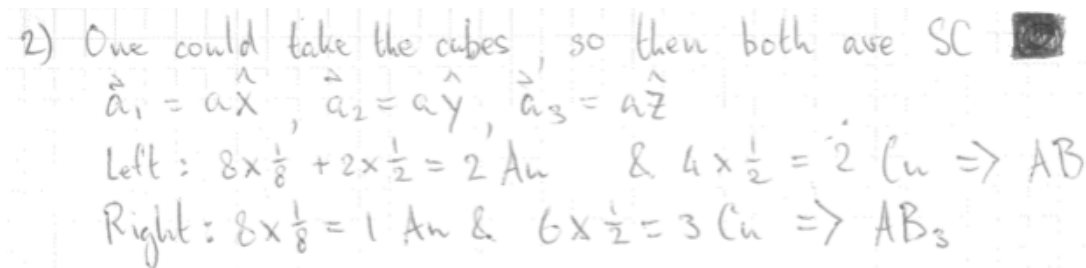 2) One could take the cubes, so then both are SC
a⃗₁ = a x̂ , a⃗₂ = a ŷ , a⃗₃ = a ẑ
Left : 8 x 1/8 + 2 x 1/2 = 2 Au & 4 x 1/2 = 2 Cu => AB
Right : 8 x 1/8 = 1 Au & 6 x 1/2 = 3 Cu => AB₃